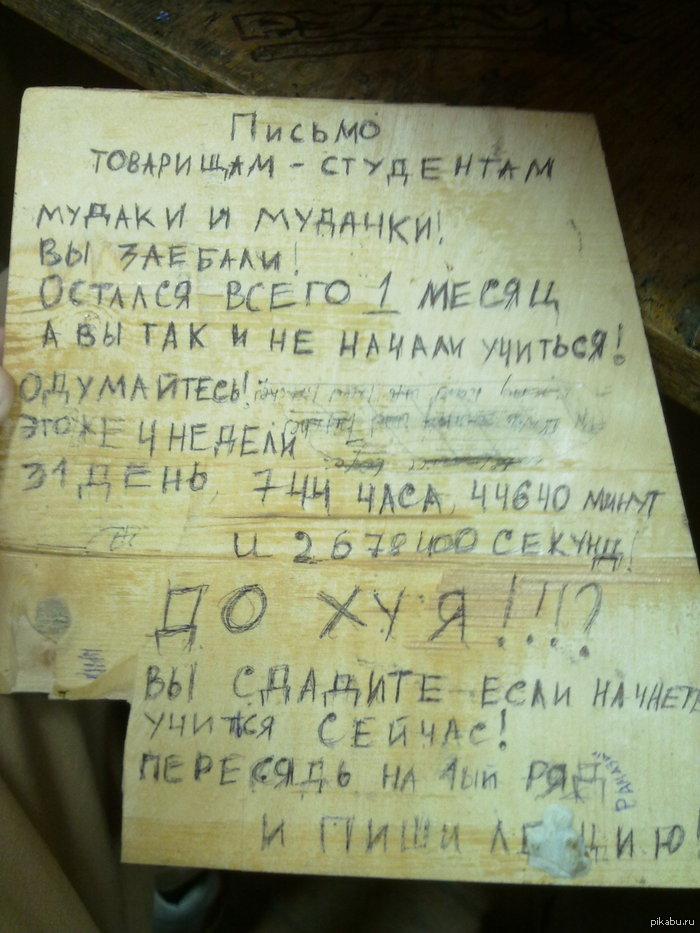 Письмо
ТОВАРИЩАМ - СТУДЕНТАМ
МУДАКИ И МУДАЧКИ!
ВЫ ЗАЕБАЛИ!
ОСТАЛСЯ ВСЕГО 1 МЕСЯЦ
А ВЫ ТАК И НЕ НАЧАЛИ УЧИТЬСЯ!
ОДУМАЙТЕСЬ!
ЭТО ЖЕ 4 НЕДЕЛИ
31 ДЕНЬ, 744 ЧАСА, 44640 МИНУТ
И 2678400 СЕКУНД!
ДО ХУЯ!!!?
ВЫ СДАДИТЕ ЕСЛИ НАЧНЕТЕ
УЧИТСЯ СЕЙЧАС!
ПЕРЕСЯДЬ НА 1ый РЯД
И ПИШИ ЛЕ ЦИЮ!
pikabu.ru